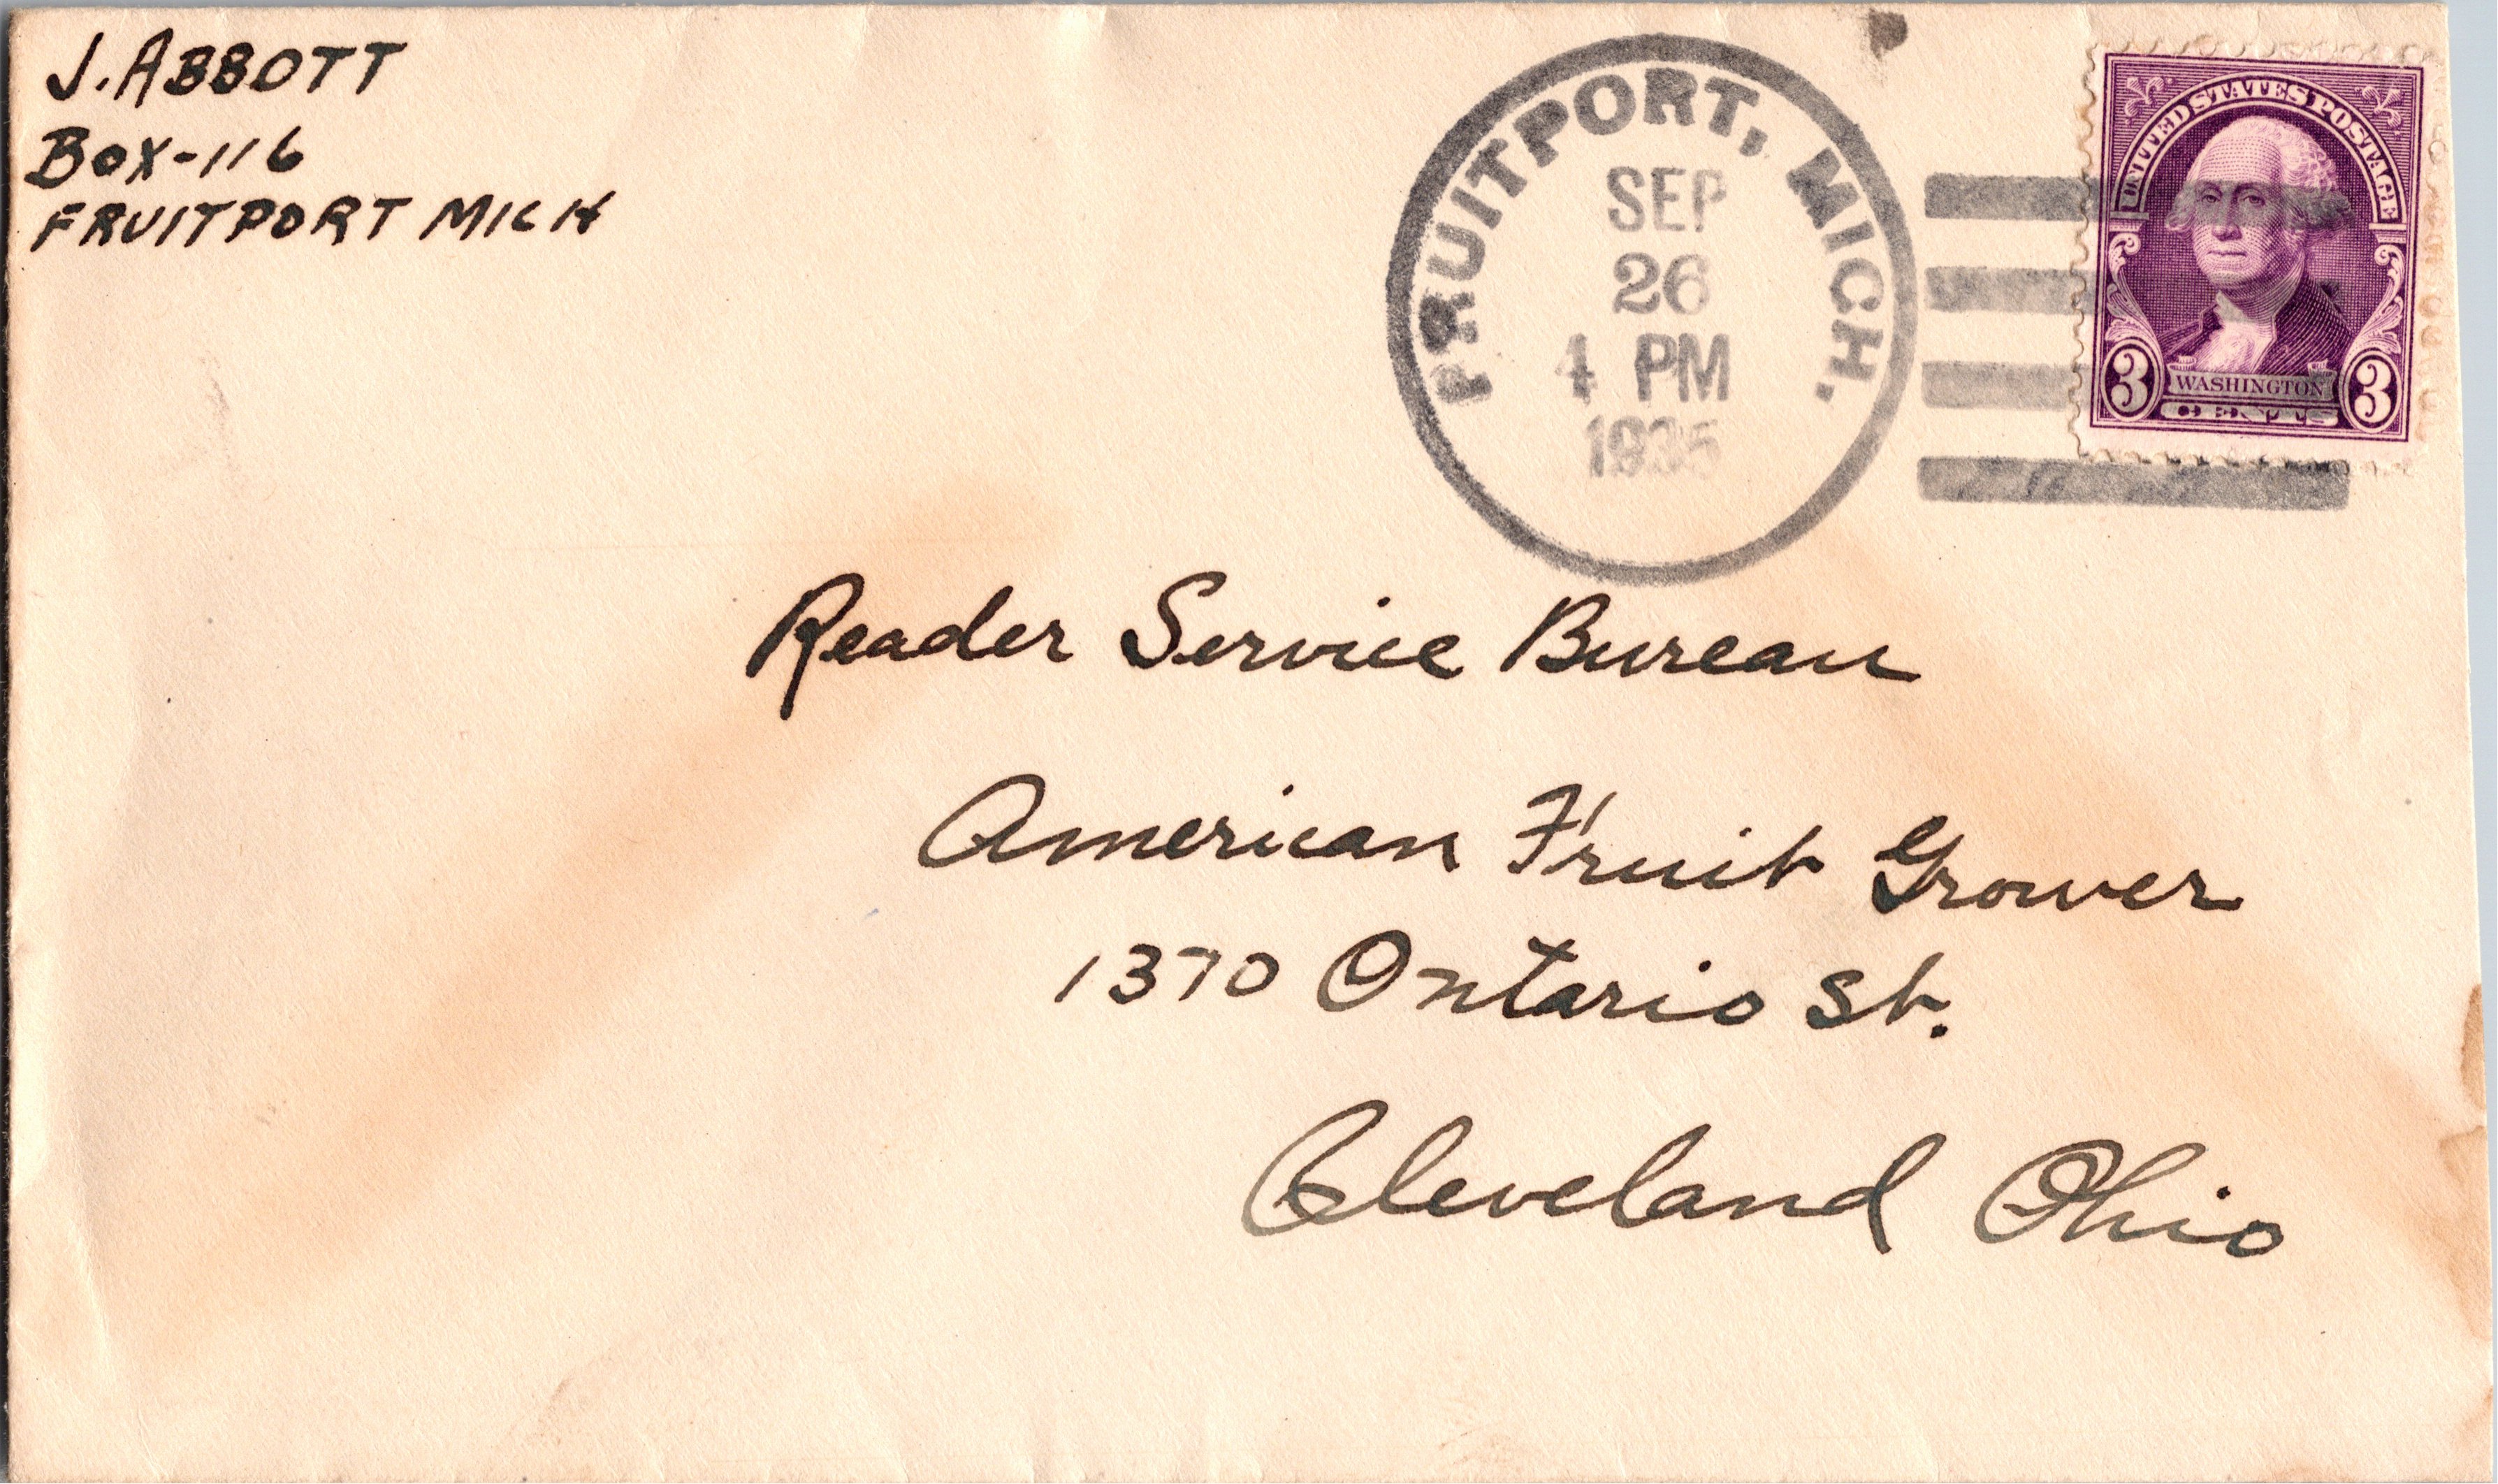 J. ABBOTT
BOX-116
FRUITPORT MICH
FRUITPORT, MICH.
SEP
26
4 PM
1935
UNITED STATES POSTAGE
3 WASHINGTON 3
CENTS
Reader Service Bureau
American Fruit Grower
1370 Ontario St.
Cleveland Ohio